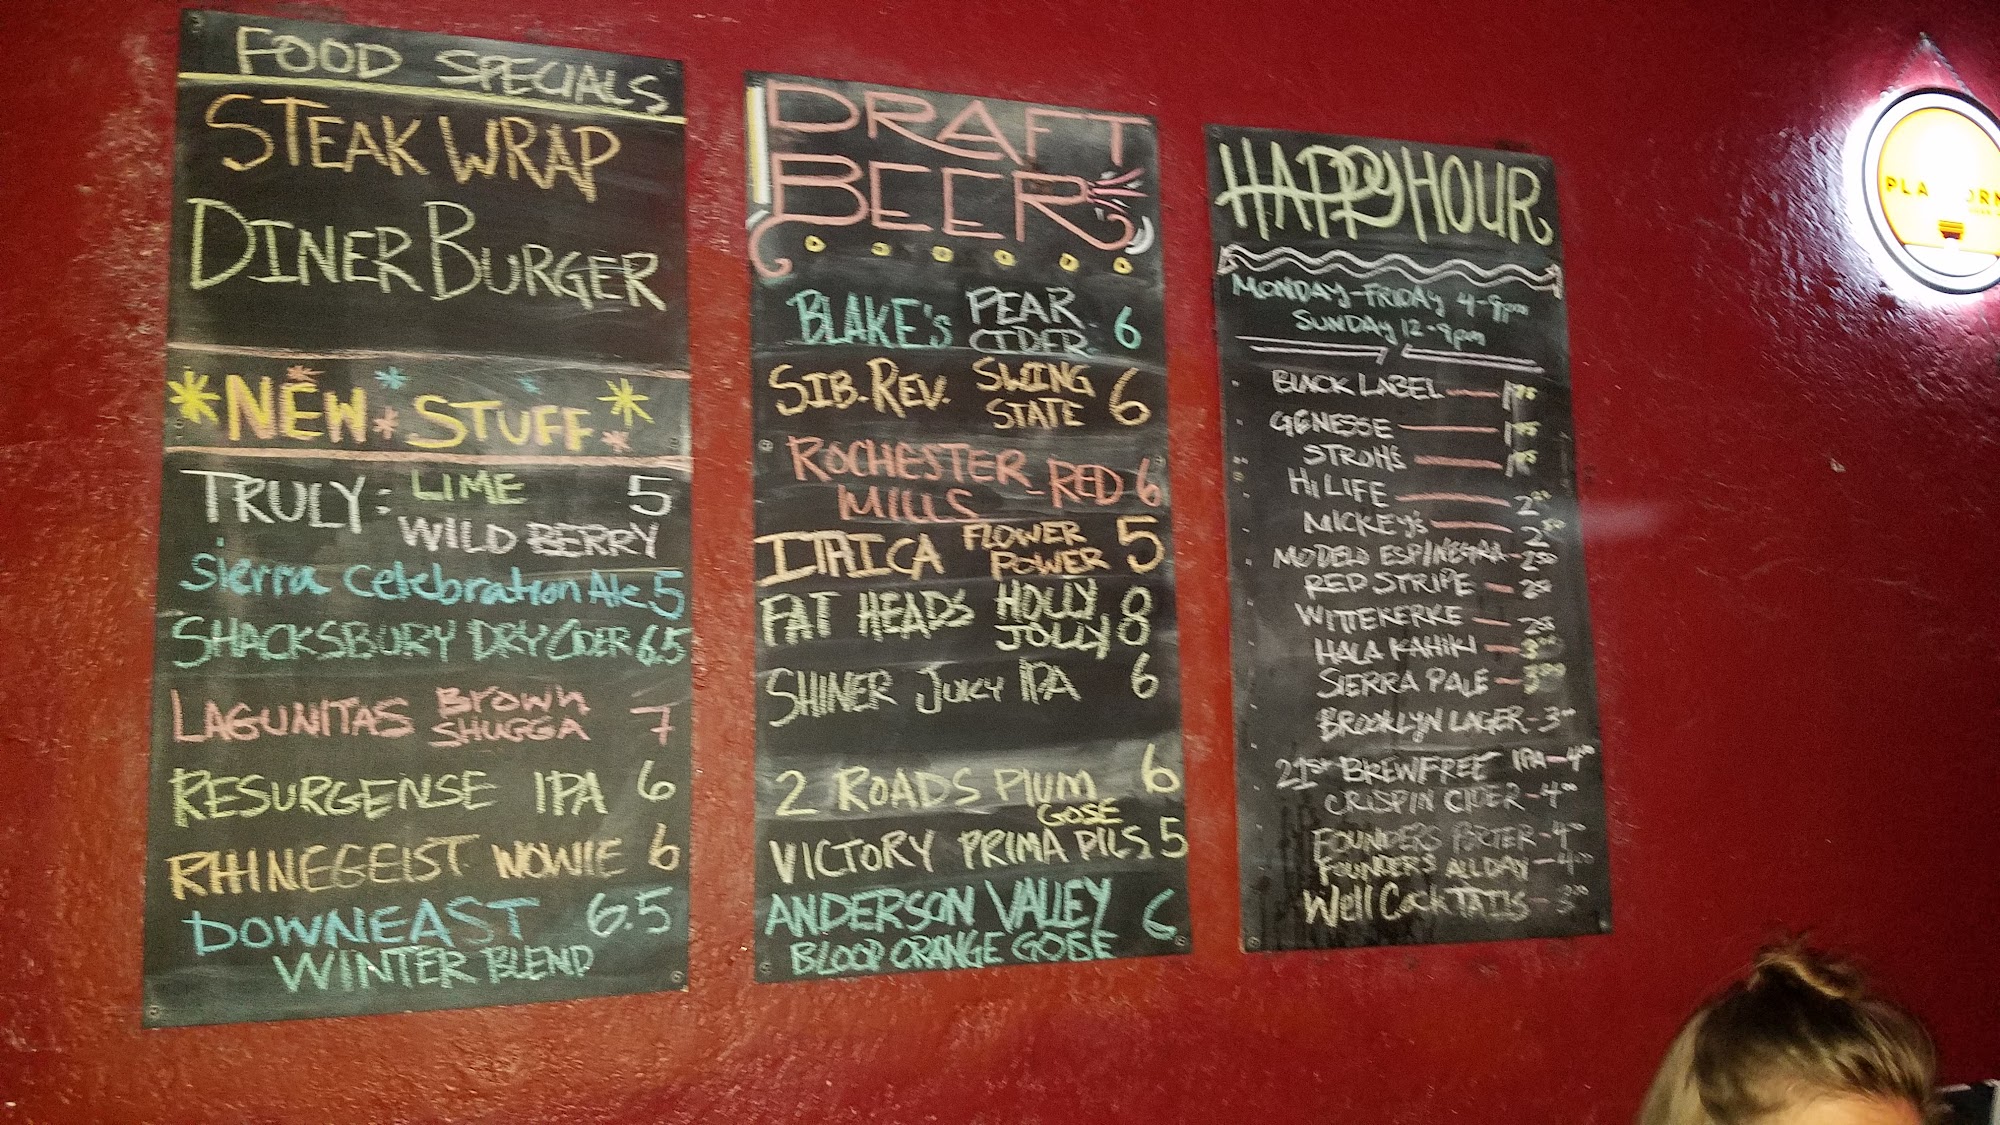 FOOD SPECIALS
STEAK WRAP
DINER BURGER
NEW STUFF
TRULY: LIME 5
WILD BERRY
Sierra Celebration Ale 5
SHACKSBURY DRY CIDER 6.5
LAGUNITAS Brown SHUGGA 7
RESURGENSE IPA 6
RHINEGEIST WOWIE 6
DOWNEAST 6.5
WINTER BLEND
DRAFT
BEER
BLAKE'S PEAR CIDER 6
SIB. REV. SWING STATE 6
ROCHESTER MILLS - RED 6
ITHICA FLOWER POWER 5
FAT HEADS HOLLY JOLLY 8 8
SHINER JUICY IPA 6
2 ROADS PLUM GOSE 6
VICTORY PRIMA PILS. 5
ANDERSON VALLEY 6
BLOOD ORANGE GOSE
HAPPY HOUR
MONDAY-FRIDAY 4-9pm
SUNDAY 12-9pm
BLACK LABEL — 1.75
GENESSE — 1.75
STROHS — 1.75
HI LIFE — 2.00
MICKEY'S — 2.50
MODELO ESP/NEGRA - 2.50
RED STRIPE - 2.50
WITTEKERKE - 2.50
HALA KAHIKI - 3.00
SIERRA PALE - 3.00
BROOKLYN LAGER - 3.00
21ST BREW FREE IPA - 4.00
CRISPIN CIDER - 4.00
FOUNDERS PORTER - 4.00
FOUNDERS ALLDAY - 4.00
Well COCKTAILS - 3.00
PLA ORM